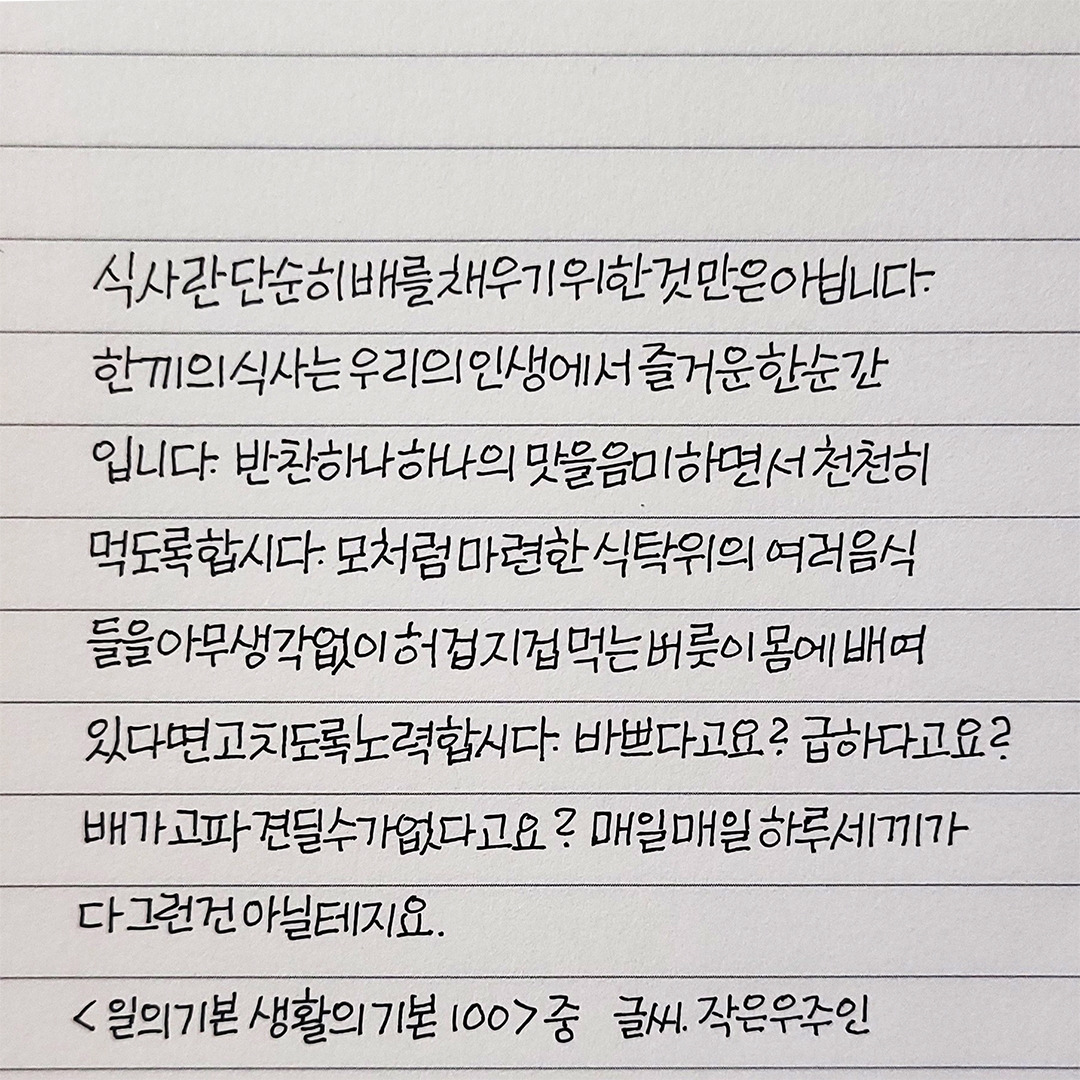 식사란 단순히 배를 채우기 위한 것만은 아닙니다.
한끼의 식사는 우리의 인생에서 즐거운 한순간
입니다. 반찬 하나하나의 맛을 음미하면서 천천히
먹도록 합시다. 모처럼 마련한 식탁위의 여러음식
들을 아무생각없이 허겁지겁 먹는 버릇이 몸에 배여
있다면 고치도록 노력합시다. 바쁘다고요? 급하다고요?
배가고파 견딜수가없다고요? 매일매일 하루세끼가
다 그런건 아닐테지요.
<일의 기본 생활의 기본 100> 중 글씨. 작은우주인